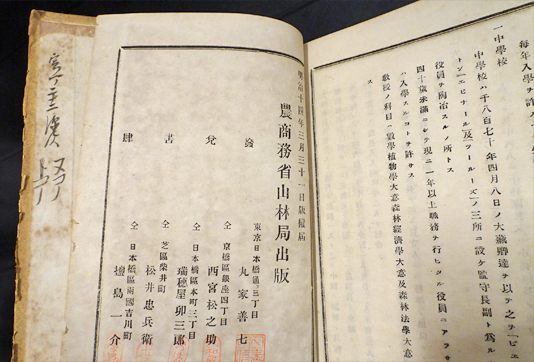 毎年入學ヲ許
一中學校
中學校ハ千八百七十年四月八日ノ大藏卿達ヲ以テ之ヲ「ビエ
トン」「エピナール」及「ツールーズ」ノ三所ニ設ケ監守長副ト爲ル
役員ヲ陶冶スルノ所トス
四十歳未滿ニシテ現ニ一年以上職務ヲ行ヒタル役員ニアラサ
ハ入學スルコトヲ許サス
敎校ノ科目ハ數學植物學大意森林經濟學大意及森林法學大意
ス
明治十四年三月三十一日版權屆
農商務省山林局出版
發兌書肆
東京日本橋通三丁目
丸家善七
仝京橋區銀座四丁目
西宮松之助
仝日本橋區本町三丁目
瑞穗屋卯三郎
仝芝區柴井町
松井忠兵衛
仝日本橋區兩國吉川町
島一介